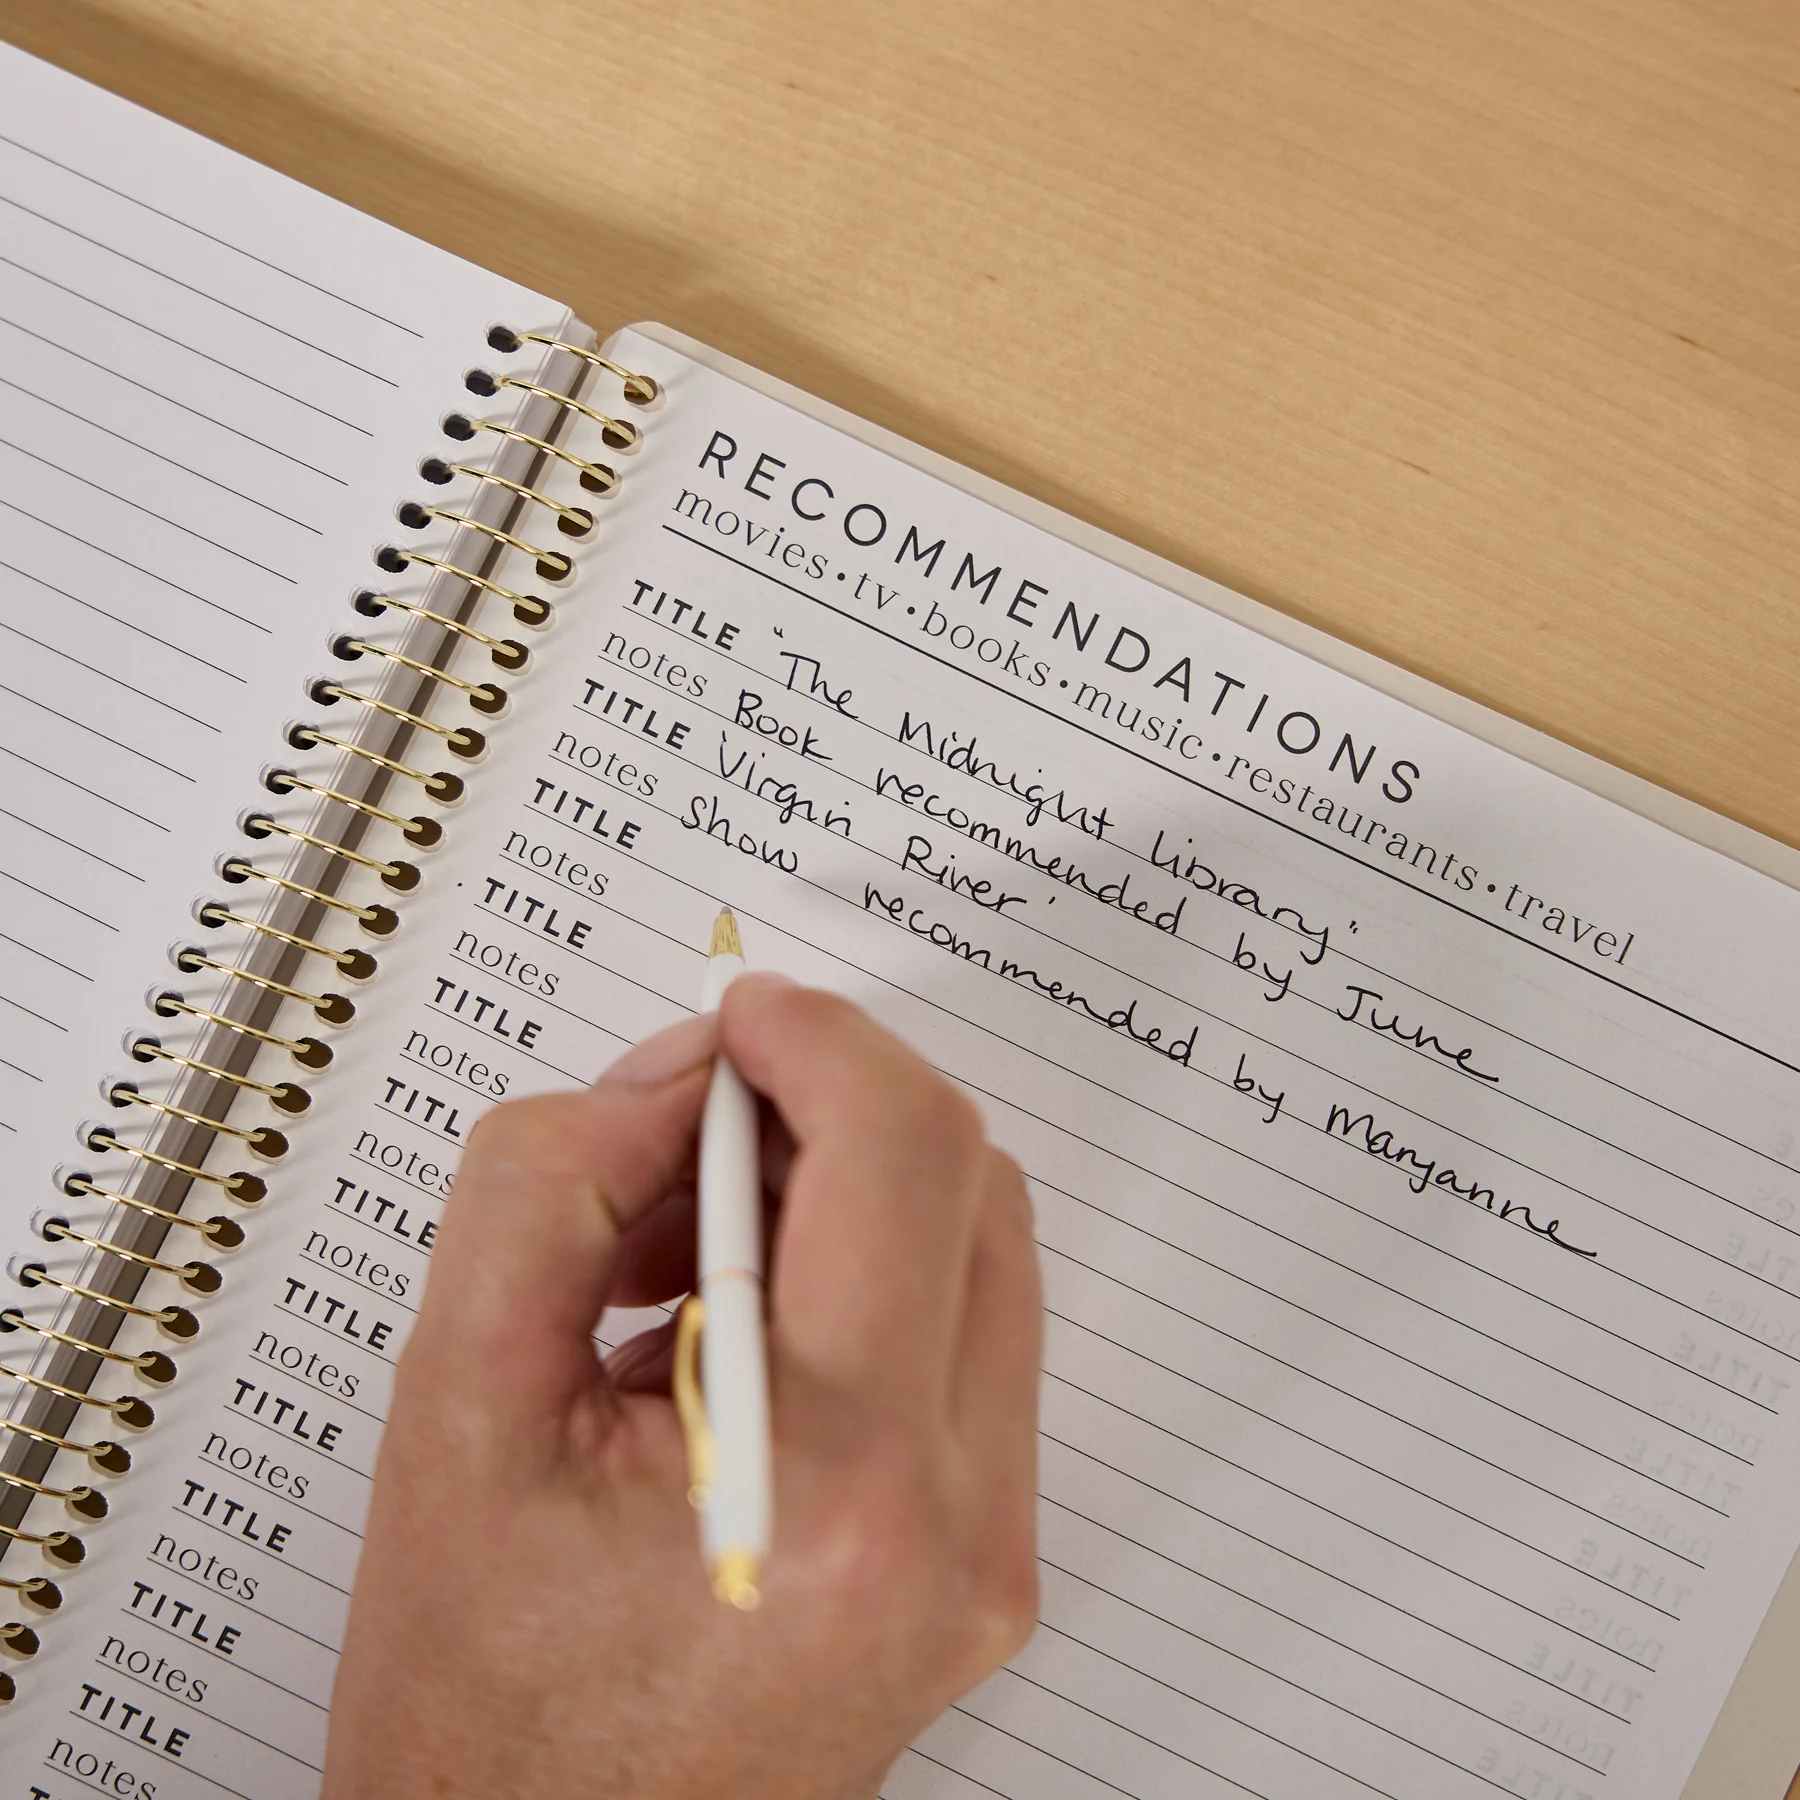 RECOMMENDATIONS
movies • tv • books • music • restaurants • travel
TITLE "The Midnight Library"
notes Book recommended by June
TITLE 'Virgin River'
notes Show recommended by Maryanne
TITLE
notes
TITLE
notes
TITLE
notes
TITL
notes
TITLE
notes
TITLE
notes
TITLE
notes
TITLE
notes
TITLE
notes
TITLE
notes